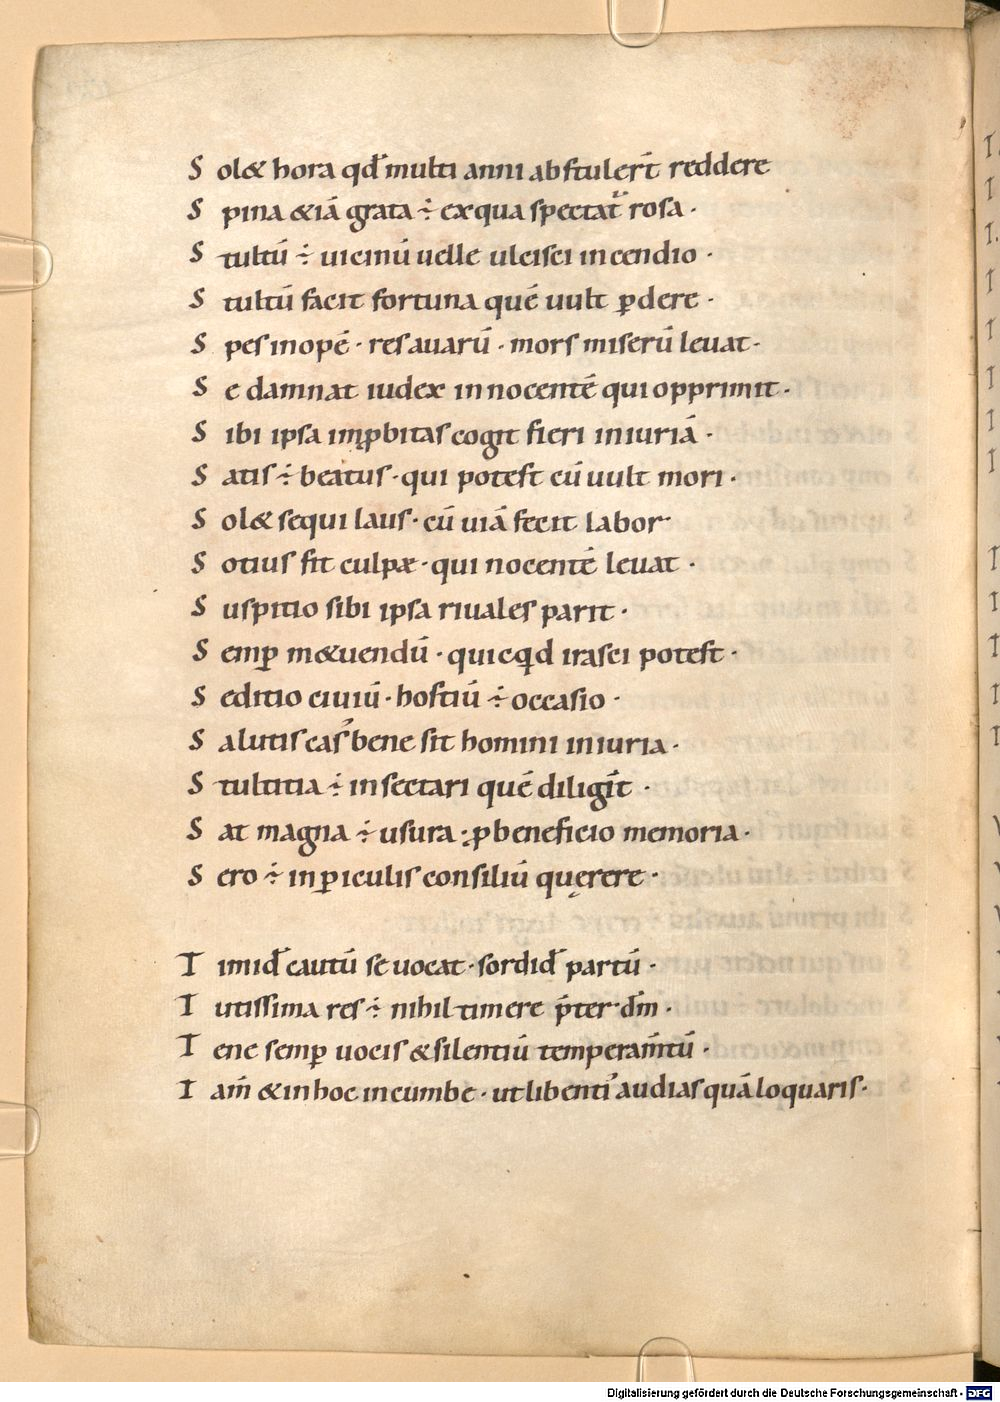 S ol& hora qđ multi anni abstuler̄t reddere
S pina &iā grata ÷ exqua spectat᷑ rosa ·
S tultū ÷ uicinū uelle ulcisci incendio ·
S tultū facit fortuna quē uult ꝑdere ·
S pes inopē · res auarū · mors miserū leuat ·
S e damnat iudex innocentē qui opprimit ·
S ibi ipsa imꝓbitas cogit fieri iniuriā ·
S atis ÷ beatus · qui potest cū uult mori ·
S ol& sequi laus · cū uiā fecit labor
S otius sit culpæ · qui nocentē leuat ·
S uspitio sibi ipsa riuales parit ·
S emꝑ m&uendū · quicqd irasci potest ·
S editio ciuiū · hostiū ÷ occasio ·
S alutis cas᾿ bene sit homini iniuria ·
S tultitia ÷ insectari quē diliger̄t ·
S at magna ÷ usura · ꝓ beneficio memoria ·
S ero ÷ inꝑiculis consiliū quęrere ·
T imid᾿ cautū se uocat · sordid᾿ partū ·
T utissima res ÷ nihil timere p̄ter dm̄ ·
T ene semꝑ uocis &silentiū temperam̄tū ·
T am̄ &inhoc incumbe · ut libenti᾿ audias quā loquaris ·
Digitalisierung gefördert durch die Deutsche Forschungsgemeinschaft - DFG